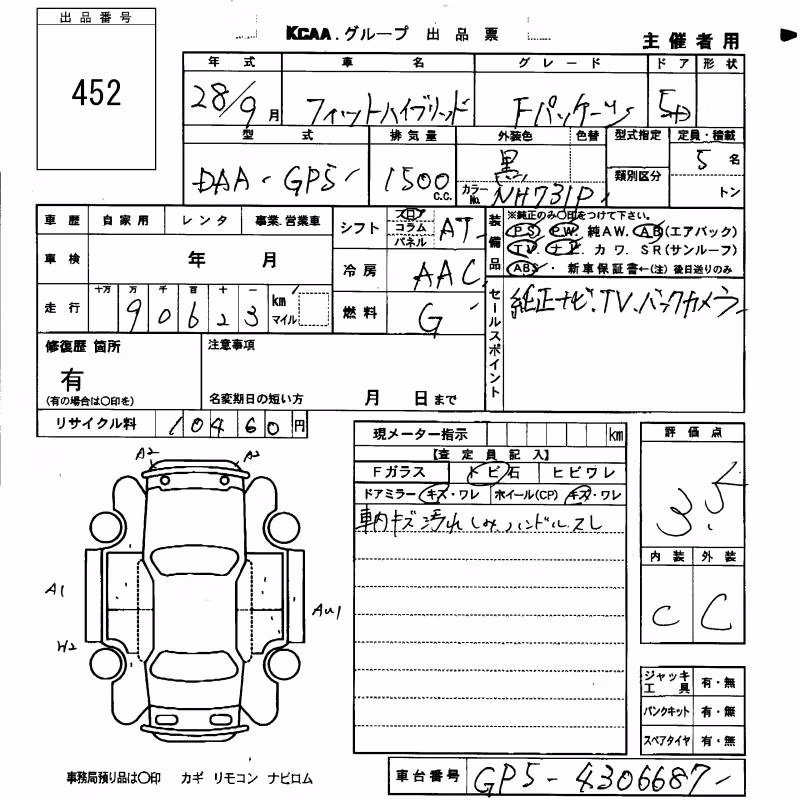 出品番号
452
KCAA.グループ 出品票
主催者用
年式 車名 グレード ドア 形状
28/9月 フィットハイブリッド Fパッケージ 5D
型式 排気量 外装色 色替 型式指定 定員・積載
DAA-GP5 1500 C.C. 黒 カラーNo. NH731P 類別区分 5名 トン
車歴 自家用 レンタ 事業.営業車
車検 年 月
走行 十万 万 千 百 十 一
90623 km マイル
シフト フロア コラム パネル AT
冷房 AAC
燃料 G
装備品
※純正のみ〇印をつけて下さい。
PS. PW. 純AW. AB(エアバック)
TV. ナビ. カワ. SR(サンルーフ)
ABS. 新車保証書←(注)後日送りのみ
セールスポイント
純正ナビ.TV.バックカメラ
修復歴 箇所
有
(有の場合は〇印を)
注意事項
名変期日の短い方 月 日まで
リサイクル料 10460円
現メーター指示 km
【査定員記入】
Fガラス トビ石 ヒビワレ
ドアミラー キズ・ワレ ホイール(CP) キズ・ワレ
車内キズ汚れ しみ ハンドルスレ
評価点
3.5
内装 外装
C C
A2 A2
A1
AU1
W2
ジャッキ工具 有・無
パンクキット 有・無
スペアタイヤ 有・無
事務局預り品は〇印 カギ リモコン ナビロム
車台番号 GP5-4306687